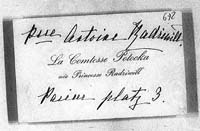 642
pour Antoine Radziwill
La Comtesse Potocka
née Princesse Radziwill
Pariser platz 3.